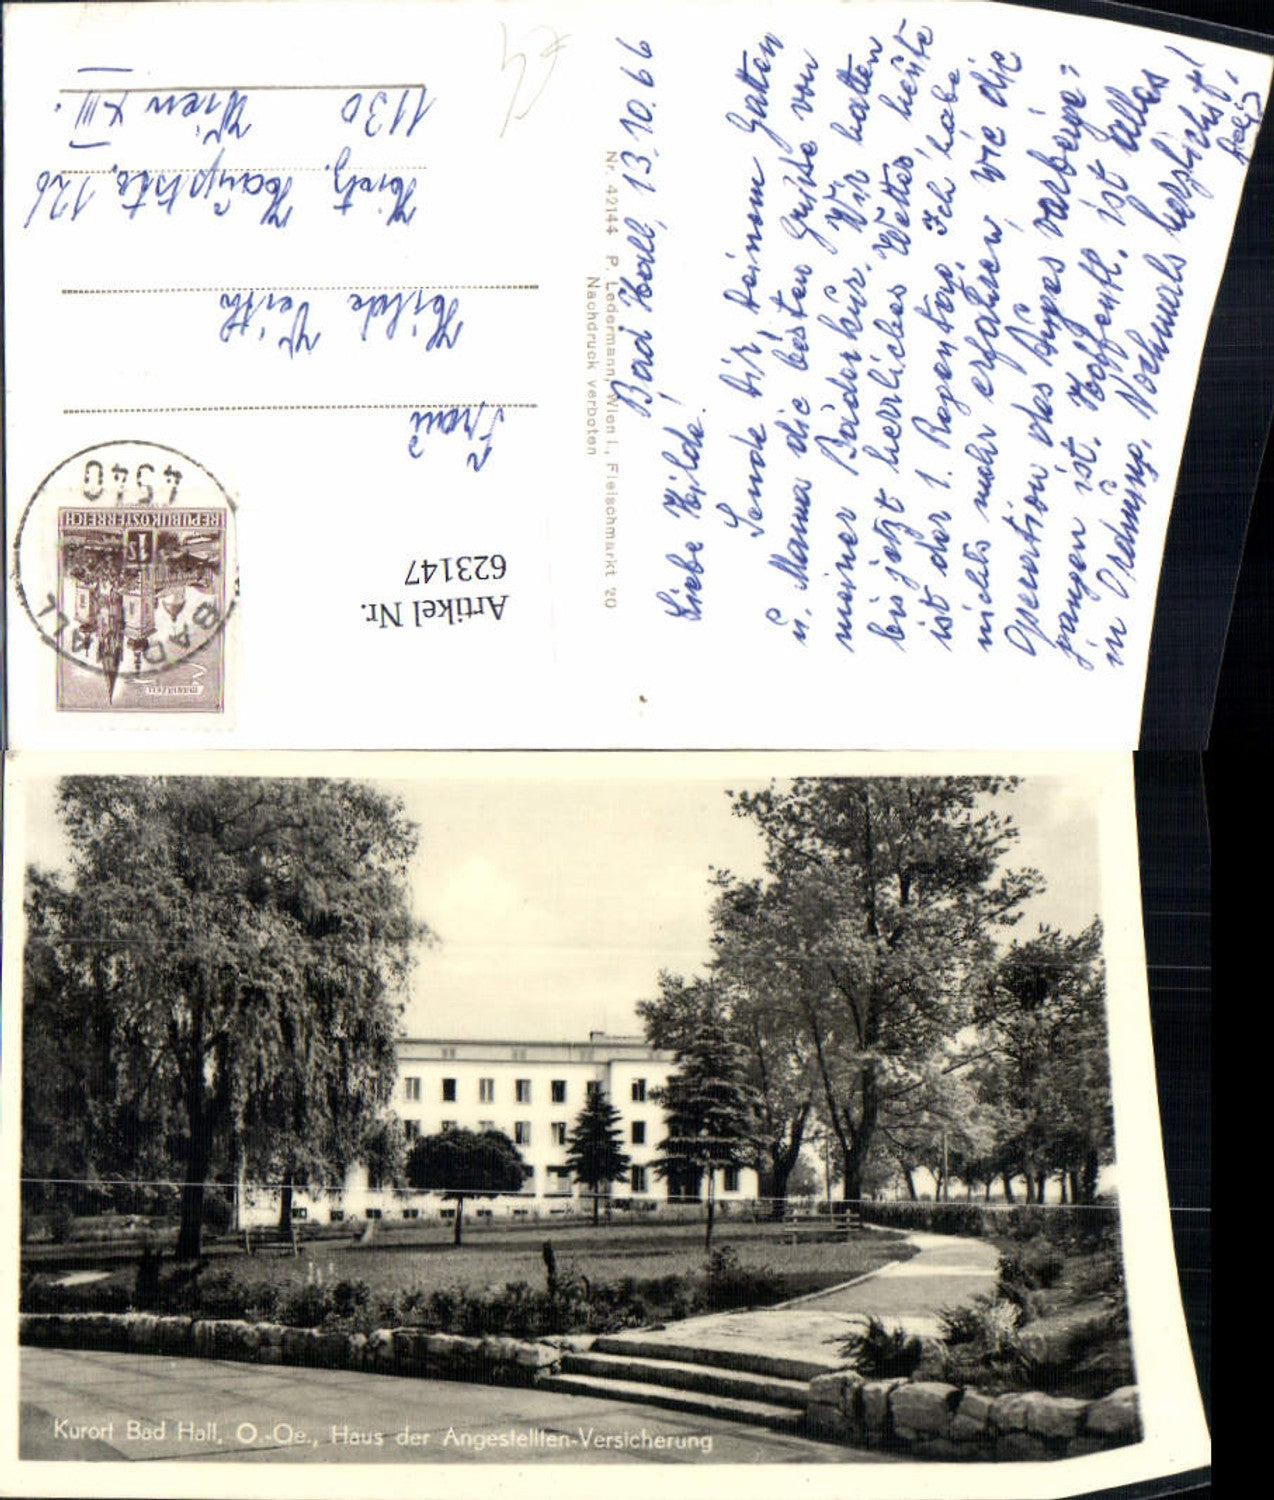 Bad Hall, 13.10.66
Liebe Hilde!
Sende Dir, Deinem Gatten
u. Mama die besten Grüße von
meiner Bäderkur. Wir hatten
bis jetzt herrliches Wetter, heute
ist der 1. Regentag. Ich habe
nichts mehr erfahren, wie die
Operation des Auges vorbeige=
gangen ist. Hoffentl. ist alles
in Ordnung. Nochmals herzlichst!
Nr. 42144 P. Ledermann, Wien I., Fleischmarkt 20
Nachdruck verboten
4540
BAD HALL
REPUBLIK ÖSTERREICH
MARIAZELL
Artikel Nr.
623147
Frau
Hilde Veith
Hietz. Hauptstr. 126
1130 Wien XIII.
Kurort Bad Hall, O.-Oe., Haus der Angestellten-Versicherung